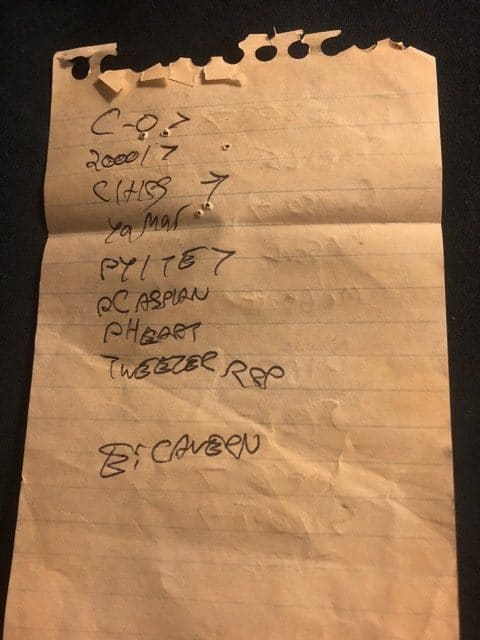 C-O >
2000 | >
C | H59 →
YaMar
PYITE >
PCASPIAN
PHEART
TWEEZER REP
E: CAVERN